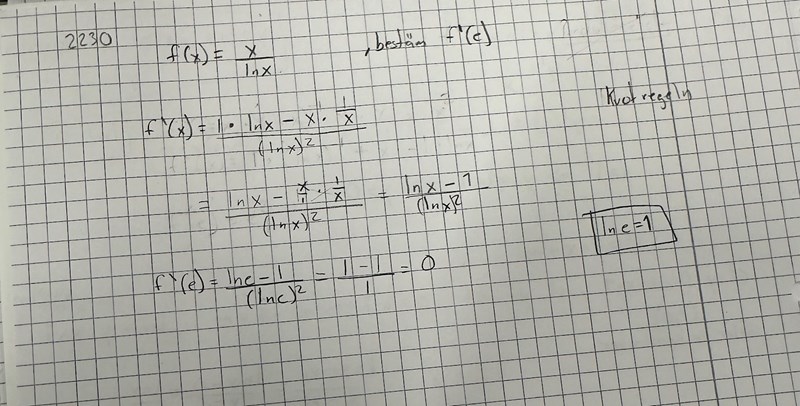 2230 f(x) = x/lnx , bestäm f'(e)
Kvotregeln
f'(x) = 1 · lnx - x · 1/x / (lnx)²
= lnx - x/1 · 1/x / (lnx)² = lnx - 1 / (lnx)²
ln e = 1
f'(e) = lne - 1 / (lne)² = 1 - 1 / 1 = 0